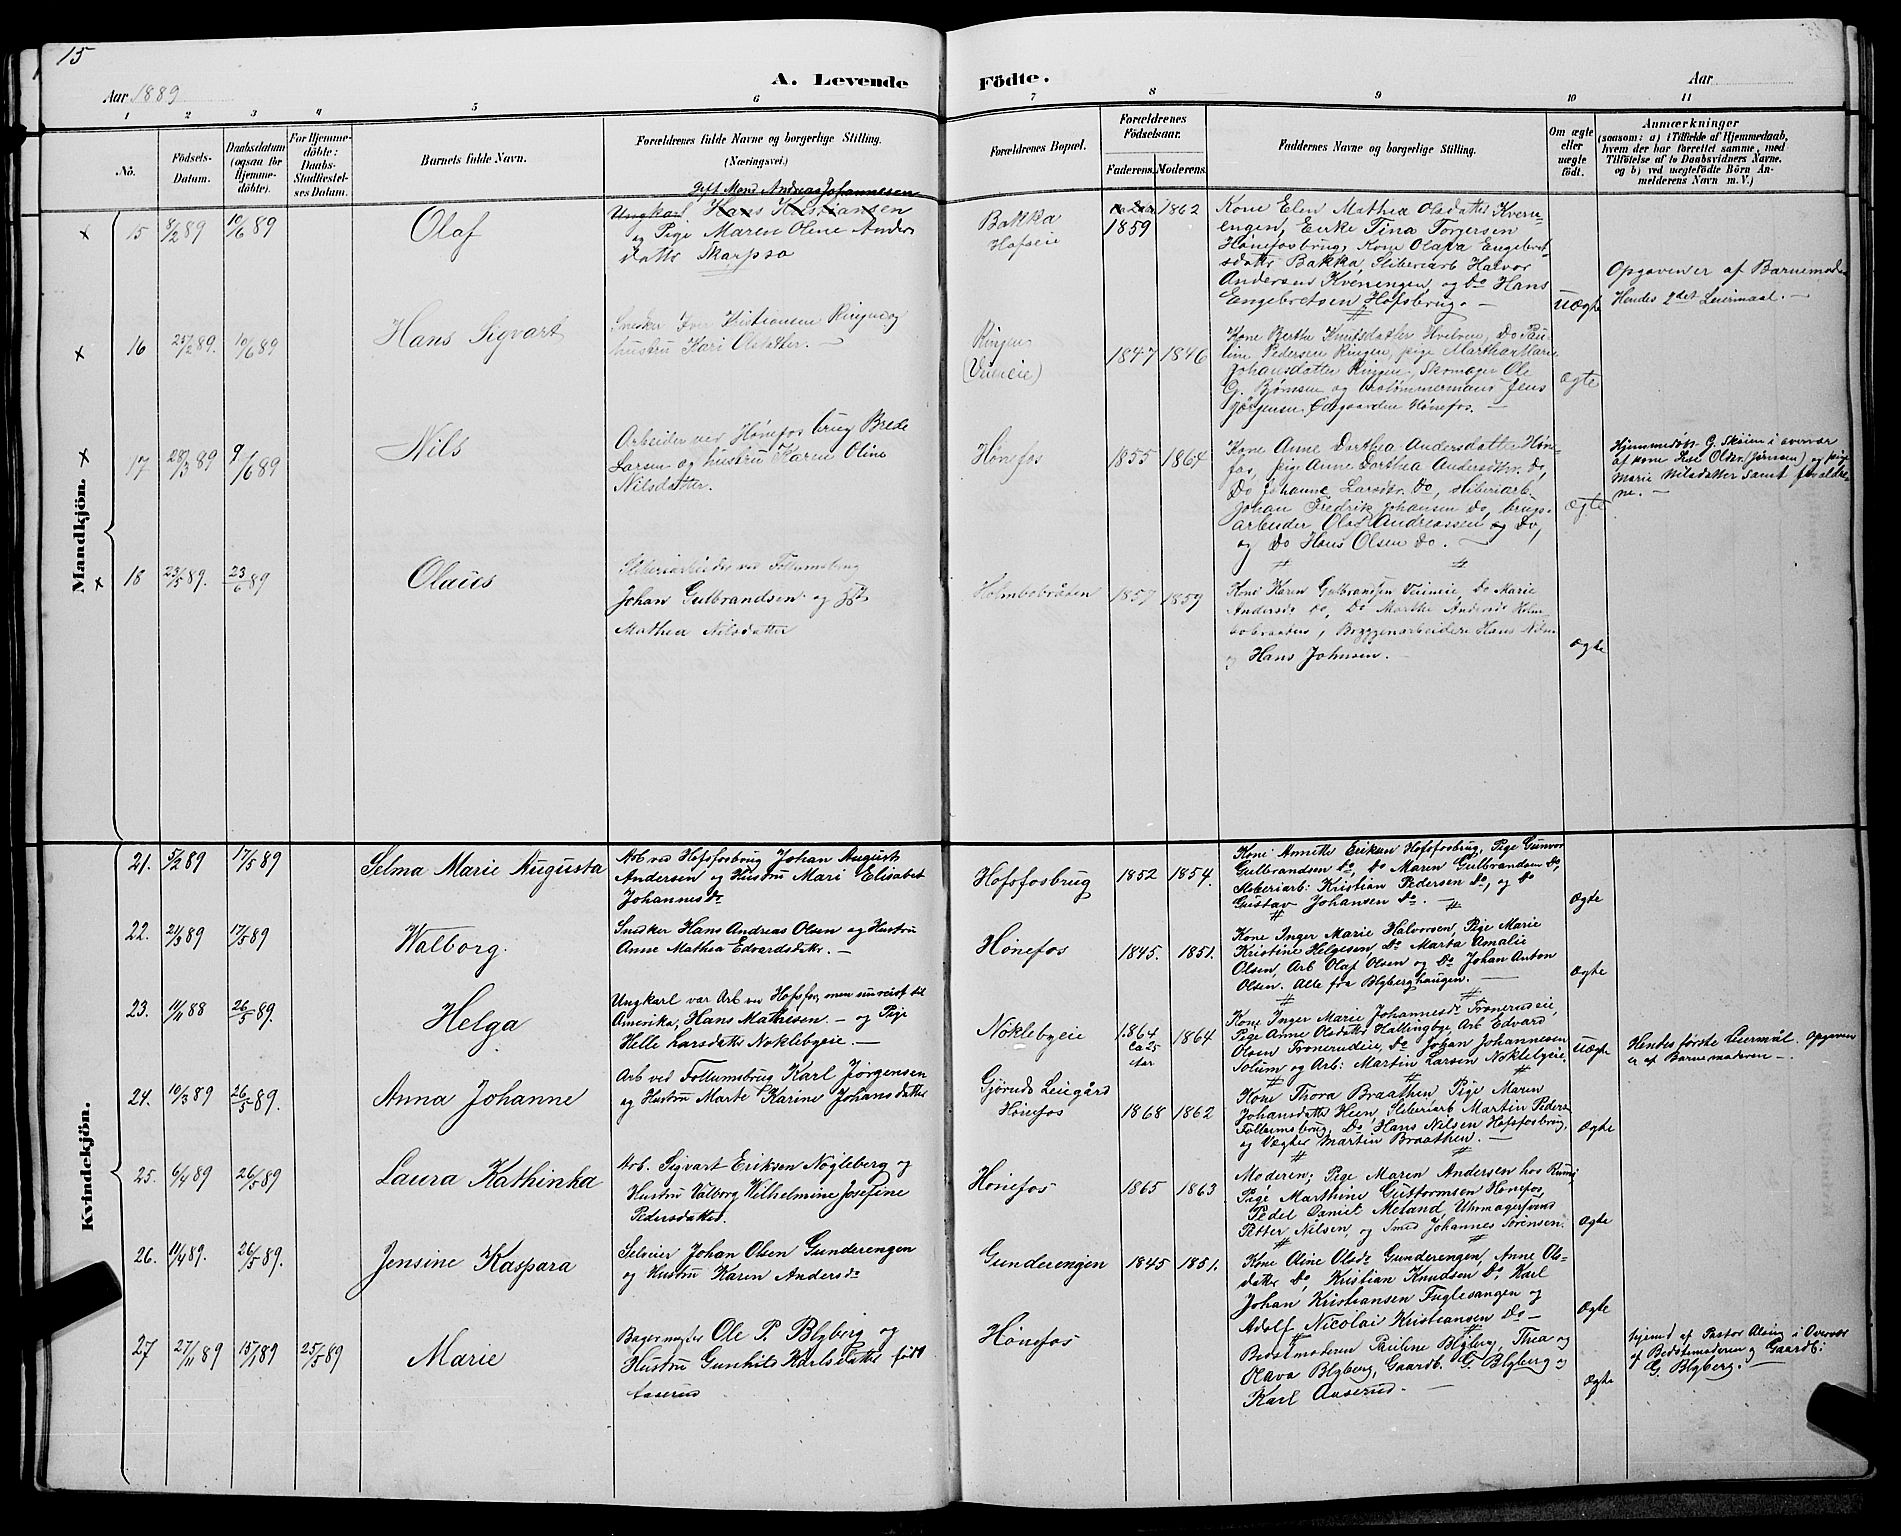 15
Aar 1889
A. Levende
Födte.
Aar
1 2 3 4 5 6 7 8 9 10 11
No.
Födsels-
Datum.
Daabsdatum
(ogsaa for
Hjemme-
döbte).
For Hjemme-
döbte:
Daabs-
Stadfæstel-
ses Datum.
Barnets fulde Navn.
Forældrenes fulde Navne og borgerlige Stilling.
(Næringsvei.)
Forældrenes Bopæl.
Forældrenes
Födselsaar.
Faderens. Moderens.
Faddernes Navne og borgerlige Stilling.
Om ægte
eller
uægte
født.
Anmærkninger
(saasom: a) i Tilfælde af Hjemmedaab,
hvem der har forrettet samme, med
Tilföielse af to Daabsvidners Navne.
og b) ved uægtefödte Börn An-
melderens Navn m. V.)
Mandkjön.
15 8/2 89 10/6 89
Olaf
Gift Mand Andreas Johannesen
Ungkarl. Hans Kristiansen
og Pige Maren Oline Anders
datter Skarpso
Bakka
Hofseie
1859
1862
Kone Elen Mathea Olsdatter Kvern-
engen, Enke Tina Torgersen
Hønefosbrug, Kone Olava Engebret-
sdatter Bakka, Sliberiarb Halvor
Andersen Kverningen, og Do Hans
Engebretsen Hofsbrug. —
uægte
Opgaven er af Barnemoder
Hendes 2det Leiermaal. —
16 25/2 89. 10/6 89
Hans Sigvart
Snedker Iver Kristiansen Ringen og
hustru Kari Olsdatter. —
Ringen
(Veieneie)
1847 1846
Kone Berthe Knutsdatter Hvelven, Do Pau-
line Pedersen Ringen, pige Martha Marie
Johansdatter Ringen, Skomager Ole
G. Bjørnsen og tømmermand Jens
Jørgensen Ødegaarden Hønefos. —
ægte
17 28/3 89 9/6 89
Nils
Arbeider ved Hønefos brug Brede
Larsen og hustru Karen Oline
Nilsdatter.
Hønefos
1855 1864
Kone Anne Dorthea Andersdatter Høne-
fos, pige Anne Dorthea Andersdtr. Do,
Do Johanne Larsdtr. Do, sliberiarb.
Johan Fredrik Johansen Do, brugs-
arbeider Olaf Andreassen Do,
og Do Hans Olsen Do. —
ægte
Hjemmedøbt G. Skøien i overvær
af kone Lise Olsdtr. (Jønsen) og pige
Marie Nilsdatter samt forældre-
ne. —
18 23/5 89. 23/6 89
Olaus
Sliberiarbeider ved Follumsbrug
Johan Gulbrandsen og H
Mathea Nilsdatter
Holmbobråten
1857 1859
Kone Karen Gulbrandsen Veieneie, Do Marie
Andersd Do, Do Marthe Andersd Holm-
bobraaten, Byggenarbeidere Hans Nilsen
og Hans Johnsen. —
ægte
Kvindekjön.
21. 5/2 89 17/5 89
Selma Marie Augusta
Arb ved Hofsfosbrug Johan August
Andersen og Hustru Mari Elisabet
Johannesdr
Hofsfosbrug
1852 1854.
Kone Annette Eriksen Hofsfosbrug, Pige Gunvor
Gulbrandsen Do, Do Maren Gulbrandsen Do,
Sliberiarb: Kristian Pedersen Do, og Do
Gustav Johansen Do. —
Ægte
22. 21/3 89 17/5 89
Walborg.
Snedker Hans Andreas Olsen og Hustru
Anne Mathea Edvardsdatr. —
Hønefos
1845. 1851.
Kone Inger Marie Halvorsen, Pige Marie
Kristine Helgesen, Do Marta Amalie
Olsen, Arb Olaf Olsen og Do Johan Anton
Olsen. Alle fra Blyberghaugen. —
Ægte
23. 14/11 88 26/5 89.
Helga
Ungkarl var Arb ved Hofsfos, men unreist til
Amerika, Hans Mathisen. — og Pige
Helle Larsdatter Noklebyeie. —
Noklebyeie
1864
Ca 25
Aar
1864
Kone Inger Marie Johannesd Tronerudeie,
Pige Anne Olsdatter Hallingbye, Arb Edvard
Olsen Tronerudeie, Do Johan Johannesen
Solum og Arb: Martin Larsen Noklebyeie
uægte
Hendes første Leiermål. Opgaven
er af Barnemoderen —
24. 10/3 89 26/5 89.
Anna Johanne
Arb ved Follumsbrug Karl Jørgensen
og Hustru Marte Karine Johansdatter
Gjøruds Leiegård
Hønefos
1868 1862
Kone Thora Braathen, Pige Maren
Johansdatter Heen, Sliberiarb Martin Peders
Follumsbrug, Do Hans Nilsen Hofsfosbrug,
og Vægter Martin Braathen. —
Ægte
25. 6/4 89 26/5 89
Laura Kathinka
Arb. Sigvart Eriksen Nøgleberg og
Hustru Valborg Wilhelmine Josefine
Pedersdatter.
Hønefos
1865 1863
Moderen; Pige Maren Andersen hos
Pige Marthine Guttormsen Hønefos,
Pedel Daniel Meland, Uhrmagersvend
Petter Nilsen, og Smed Johannes Sørensen.
Ægte
26. 11/4 89. 26/5 89.
Jensine Kaspara
Selveier Johan Olsen Gunderengen
og Hustru Karen Andersdr
Gunderengen
1845 1851.
Kone Oline Olsdr Gunderengen, Anne Ols-
datter Do, Kristian Knudsen Do, Karl
Johan Kristiansen Fuglesangen og
Adolf Nicolai Kristiansen Do —
Ægte
27 27/11 89 15/1 89 25/5 89
Marie
Bagermester Ole P. Blyberg og
Hustru Gunhild Karlsdatter født
Aaserud
Hønefos
Bedstemoderen Pauline Blyberg, Thea og
Olava Blyberg, Gaardb. G. Blyberg og
Karl Aaserud. —
Ægte
hjemd af Pastor Alsing i Overvær
af Bedstemoderen og Gaardb:
G. Blyberg. —